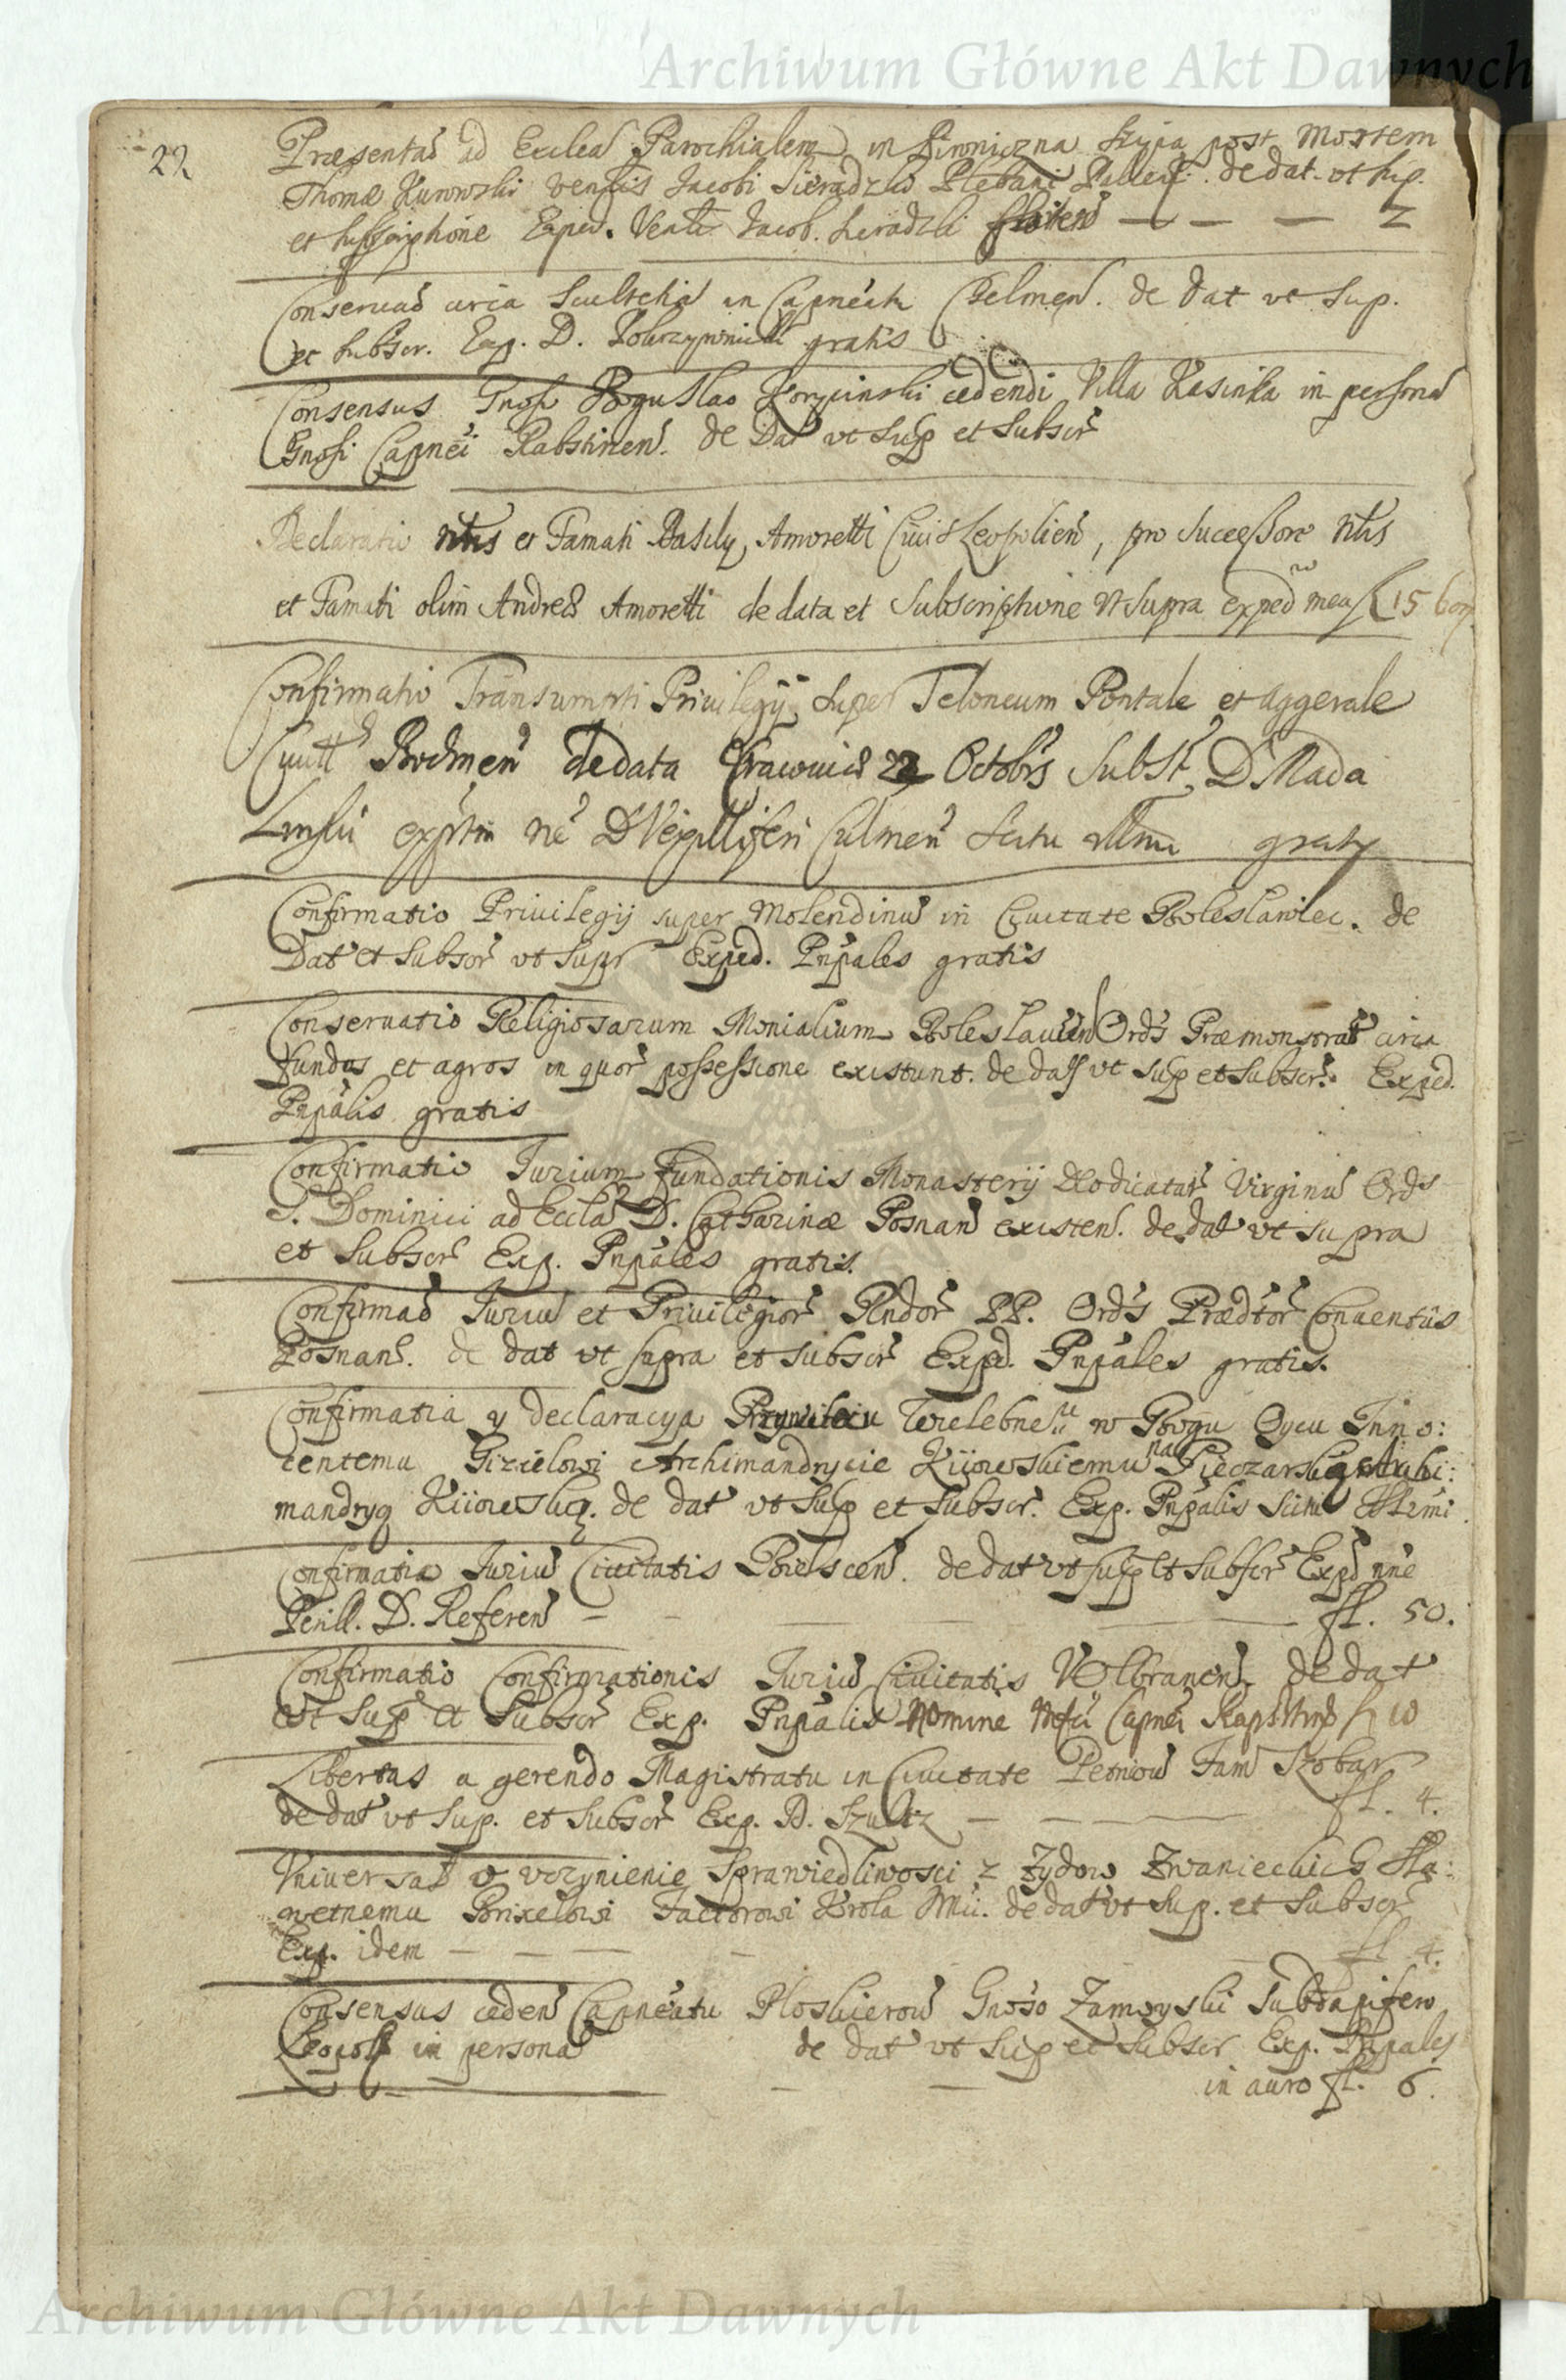 Archiwum Główne Akt Dawnych
22
Præsentao ad Ecclea Parochialem in post Mortem
Thomæ Kurowski Jacobi Sieradzki Plebani de dat. vt sup.
et subscriptione Exped. Jacob. Siradzki — — — 2
Conseruao circa Scultetia in Capneatu Chelmen. de dat vt sup.
et subscr. Exp. D. gratis
Consensus Gnoso Boguslao Korycinski cedendi Villa Kasinka in persona
Gnosi Capnei Rabstinen. de Dat vt sup et subscr
Declaratio Nblis et Famati Basily Amoretti Ciuis Leopolien, pro Successore Nblis
et Famati olim Andreæ Amoretti de data et Subscriptione vt supra exped 15
Confirmatio Transumpti Priuilegij super Teloneum Pontale et aggerale
de data Cracouiæ 22 Octobris Subst D Mada
linski D Vexilliferi Culmen gratis
Confirmatio Priuilegij super Molendinu in Ciuitate Boleslawiec. de
Dat et subscr vt supr Exped. Pnpales gratis
Conseruatio Religiosarum Monialium Boleslauien Ords Præmonstrat circa
fundos et agros in quor possessione existunt. de dat vt sup et subscr. Exped.
Pnpalis gratis
Confirmatio Jurium Fundationis Monasterij Virginu Ords
S. Dominici ad Eccla D. Catharinæ Posnan existen. de dat vt supra
et subscr Exp. Pnpales gratis.
Confirmao Juriu et Priuilegior Rndor PP. Ords Prædtor Conuentûs
Posnan. de dat vt supra et subscr Exped. Pnpales gratis.
Confirmatia y declaracya Przywileiu Wielebneu w Bogu Oycu Inno:
centemu Gizielowi Archimandrycie Kiiowskiemu na Pieczarską Archi:
mandryą Kiiowską. de dat vt sup et subscr. Exp. Pnpalis
Confirmatia Juriu Ciuitatis Bielscen. de dat vt sup et subscr Exped nne
Perill. D. Referen — — fl. 50.
Confirmatio Confirmationis Juriu Ciuitatis Wolbramen. de dat
vt sup et subscr Exp. Pnpalis Nomine Capnei Rapsztyn fl 10
Libertas a gerendo Magistratu in Ciuitate Fam Szobar
de dat vt sup. et subscr Exp. D. Szultz — — fl. 4.
Vniuersał o vczynienie sprawiedliwosci z Zydow Zwanieckich Sła:
wetnemu Factorowi Krola Jmci. de dat vt sup. et subscr
Exp. idem — — — fl 4.
Consensus ceden Capneatu Ploskierow Gnoso Zamoyski Subdapifero
in persona de dat vt sup et subscr Exp. Pnpales
in auro fl. 6.
Archiwum Główne Akt Dawnych